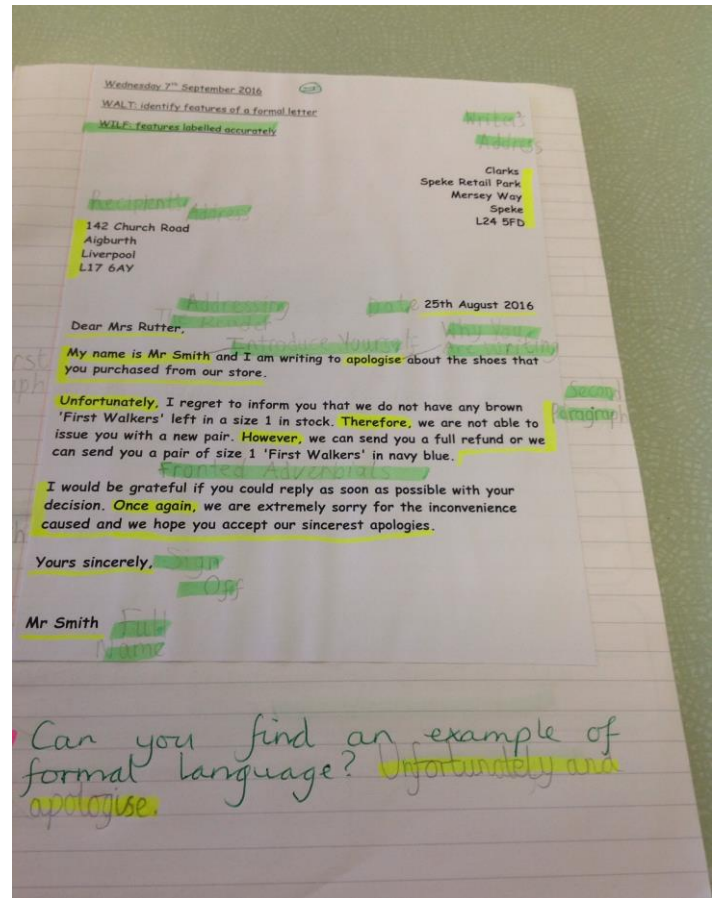 Wednesday 7th September 2016
WALT: identify features of a formal letter
WILF: features labelled accurately
Writer's
Address
Clarks
Speke Retail Park
Mersey Way
Speke
L24 5FD
Address
142 Church Road
Aigburth
Liverpool
L17 6AY
Addressing
The Reader
Date
25th August 2016
Dear Mrs Rutter,
Introduce Yourself
Why You
Are Writing
My name is Mr Smith and I am writing to apologise about the shoes that
you purchased from our store.
Unfortunately, I regret to inform you that we do not have any brown
'First Walkers' left in a size 1 in stock. Therefore, we are not able to
issue you with a new pair. However, we can send you a full refund or we
can send you a pair of size 1 'First Walkers' in navy blue.
Second
Paragraph
Fronted Adverbials
I would be grateful if you could reply as soon as possible with your
decision. Once again, we are extremely sorry for the inconvenience
caused and we hope you accept our sincerest apologies.
Yours sincerely,
Sign
Off
Mr Smith
Full
Name
Can you find an example of
formal language? Unfortundely and
apologise.